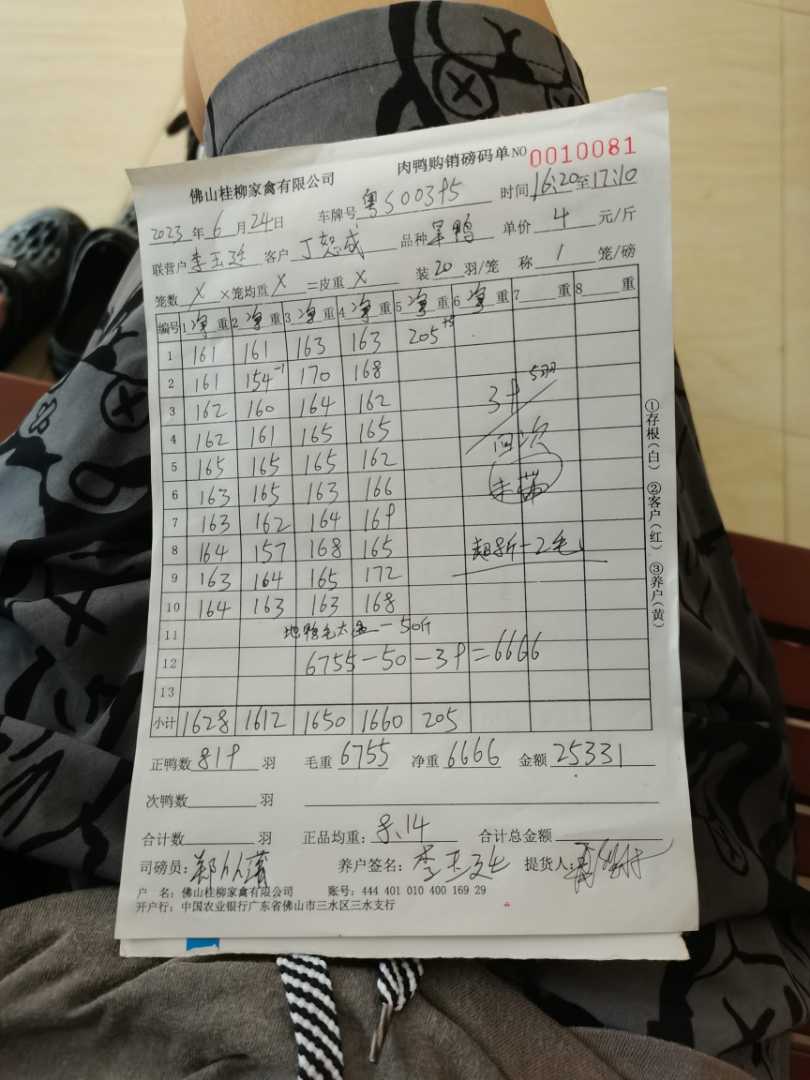 肉鸭购销磅码单 NO 0010081
佛山桂柳家禽有限公司
2023 年 6 月 24 日 车牌号 粤S003f5 时间 16:20至17:10
联营户 李玉 客户 丁恕成 品种 单价 4 元/斤
笼数 X ×笼均重 X =皮重 X 装 20 羽/笼 称 1 笼/磅
编号 1 净 重 2 净 重 3 净 重 4 净 重 5 净 重 6 净 重 7 重 8 重
1 161 161 163 163 205 +5
2 161 154 -1 170 168
3 162 160 164 162
4 162 161 165 165
5 165 165 165 162
6 163 165 163 166
7 163 162 164 16f
8 164 157 168 165
9 163 164 165 172
10 164 163 163 168
3f 5羽
四次
未带
超8斤-2毛
11 地鸭毛太 -50斤
12 6755-50-3f=6666
13
小计 1628 1612 1650 1660 205
正鸭数 81f 羽 毛重 6755 净重 6666 金额 25331
次鸭数 羽
合计数 羽 正品均重: 8.14 合计总金额
司磅员: 养户签名: 李玉 提货人:
户 名: 佛山桂柳家禽有限公司 账号: 444 401 010 400 169 29
开户行: 中国农业银行广东省佛山市三水区三水支行
①存根(白) ②客户(红) ③养户(黄)